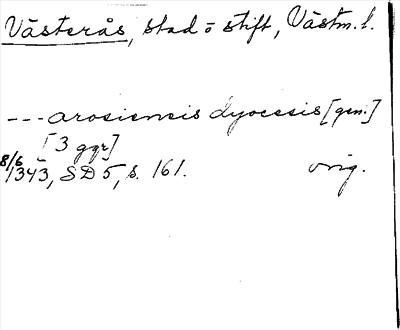 Västerås, stad o stift, Västm. l.
--- arosiensis dyocesis [gen.]
[3 ggr]
8/6 1343, SD 5, s. 161. orig.